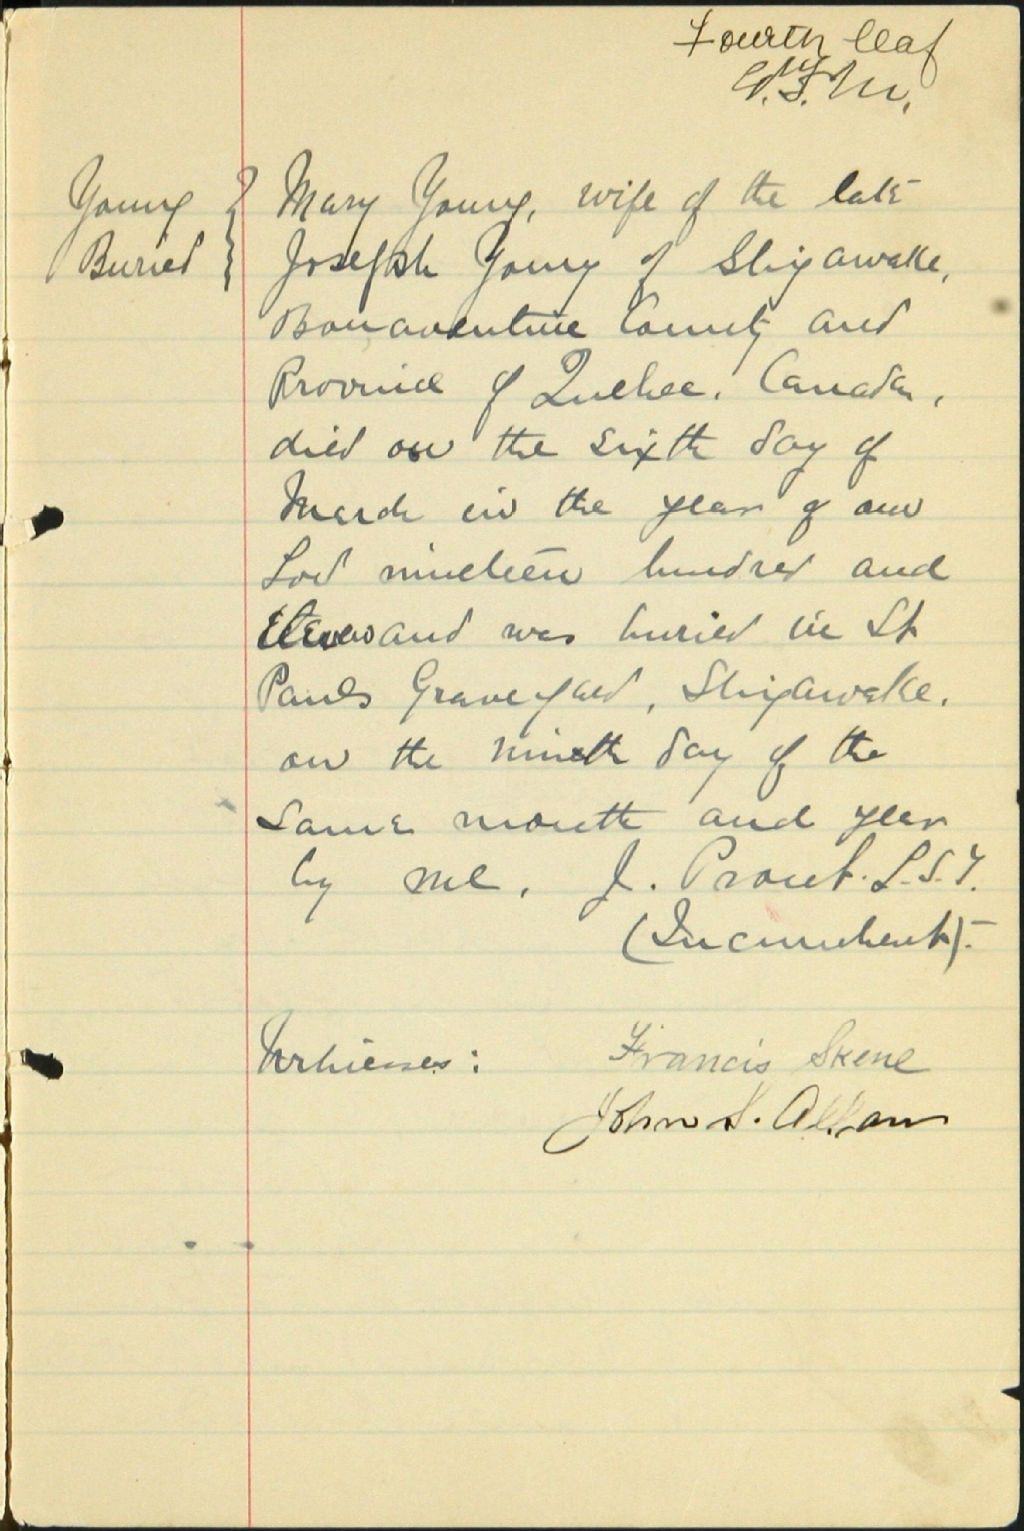 Fourth leaf
Young
Buried
Mary Young, wife of the late
Joseph Young of Shigawake,
Bonaventure County and
Province of Quebec, Canada,
died on the sixth day of
March in the year of our
Lord nineteen hundred and
Eleven and was buried in St
Pauls Graveyard, Shigawake,
on the ninth day of the
same month and year
by me, J. Prout. L.S.T.
(Incumbent).
Witnesses: Francis Skene
John S. Allan